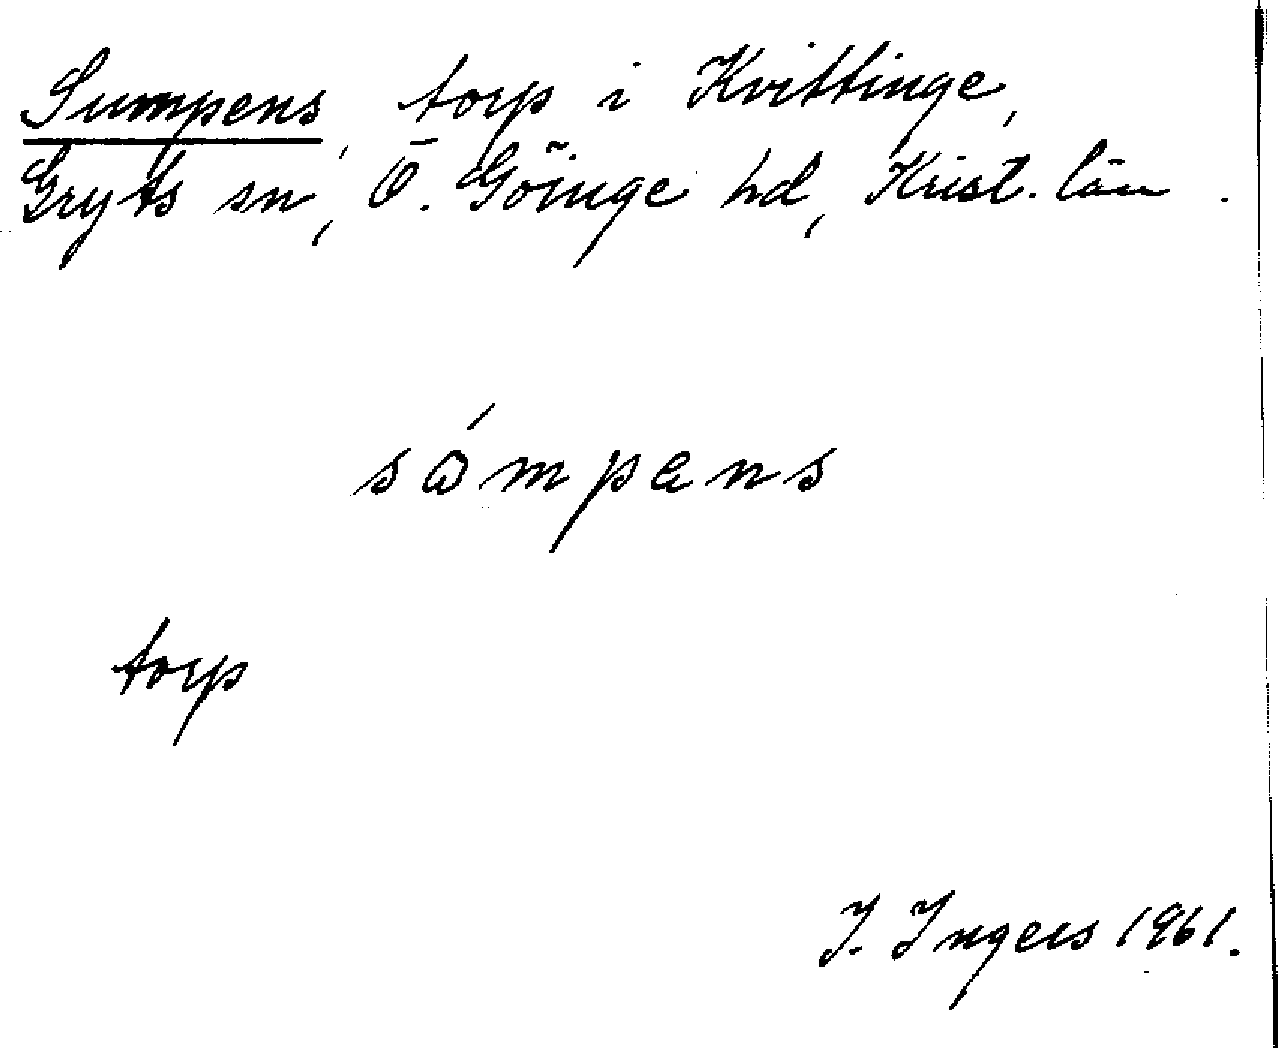 Sumpens, torp i Kvittinge,
Gryts sn, Ö. Göinge hd, Krist. län.
sómpans
torp
I. Ingers 1961.